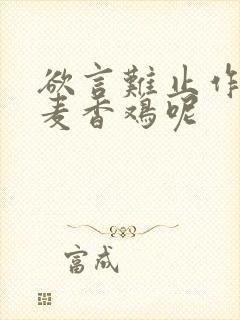 欲言難止作
麦香鸡呢
富成